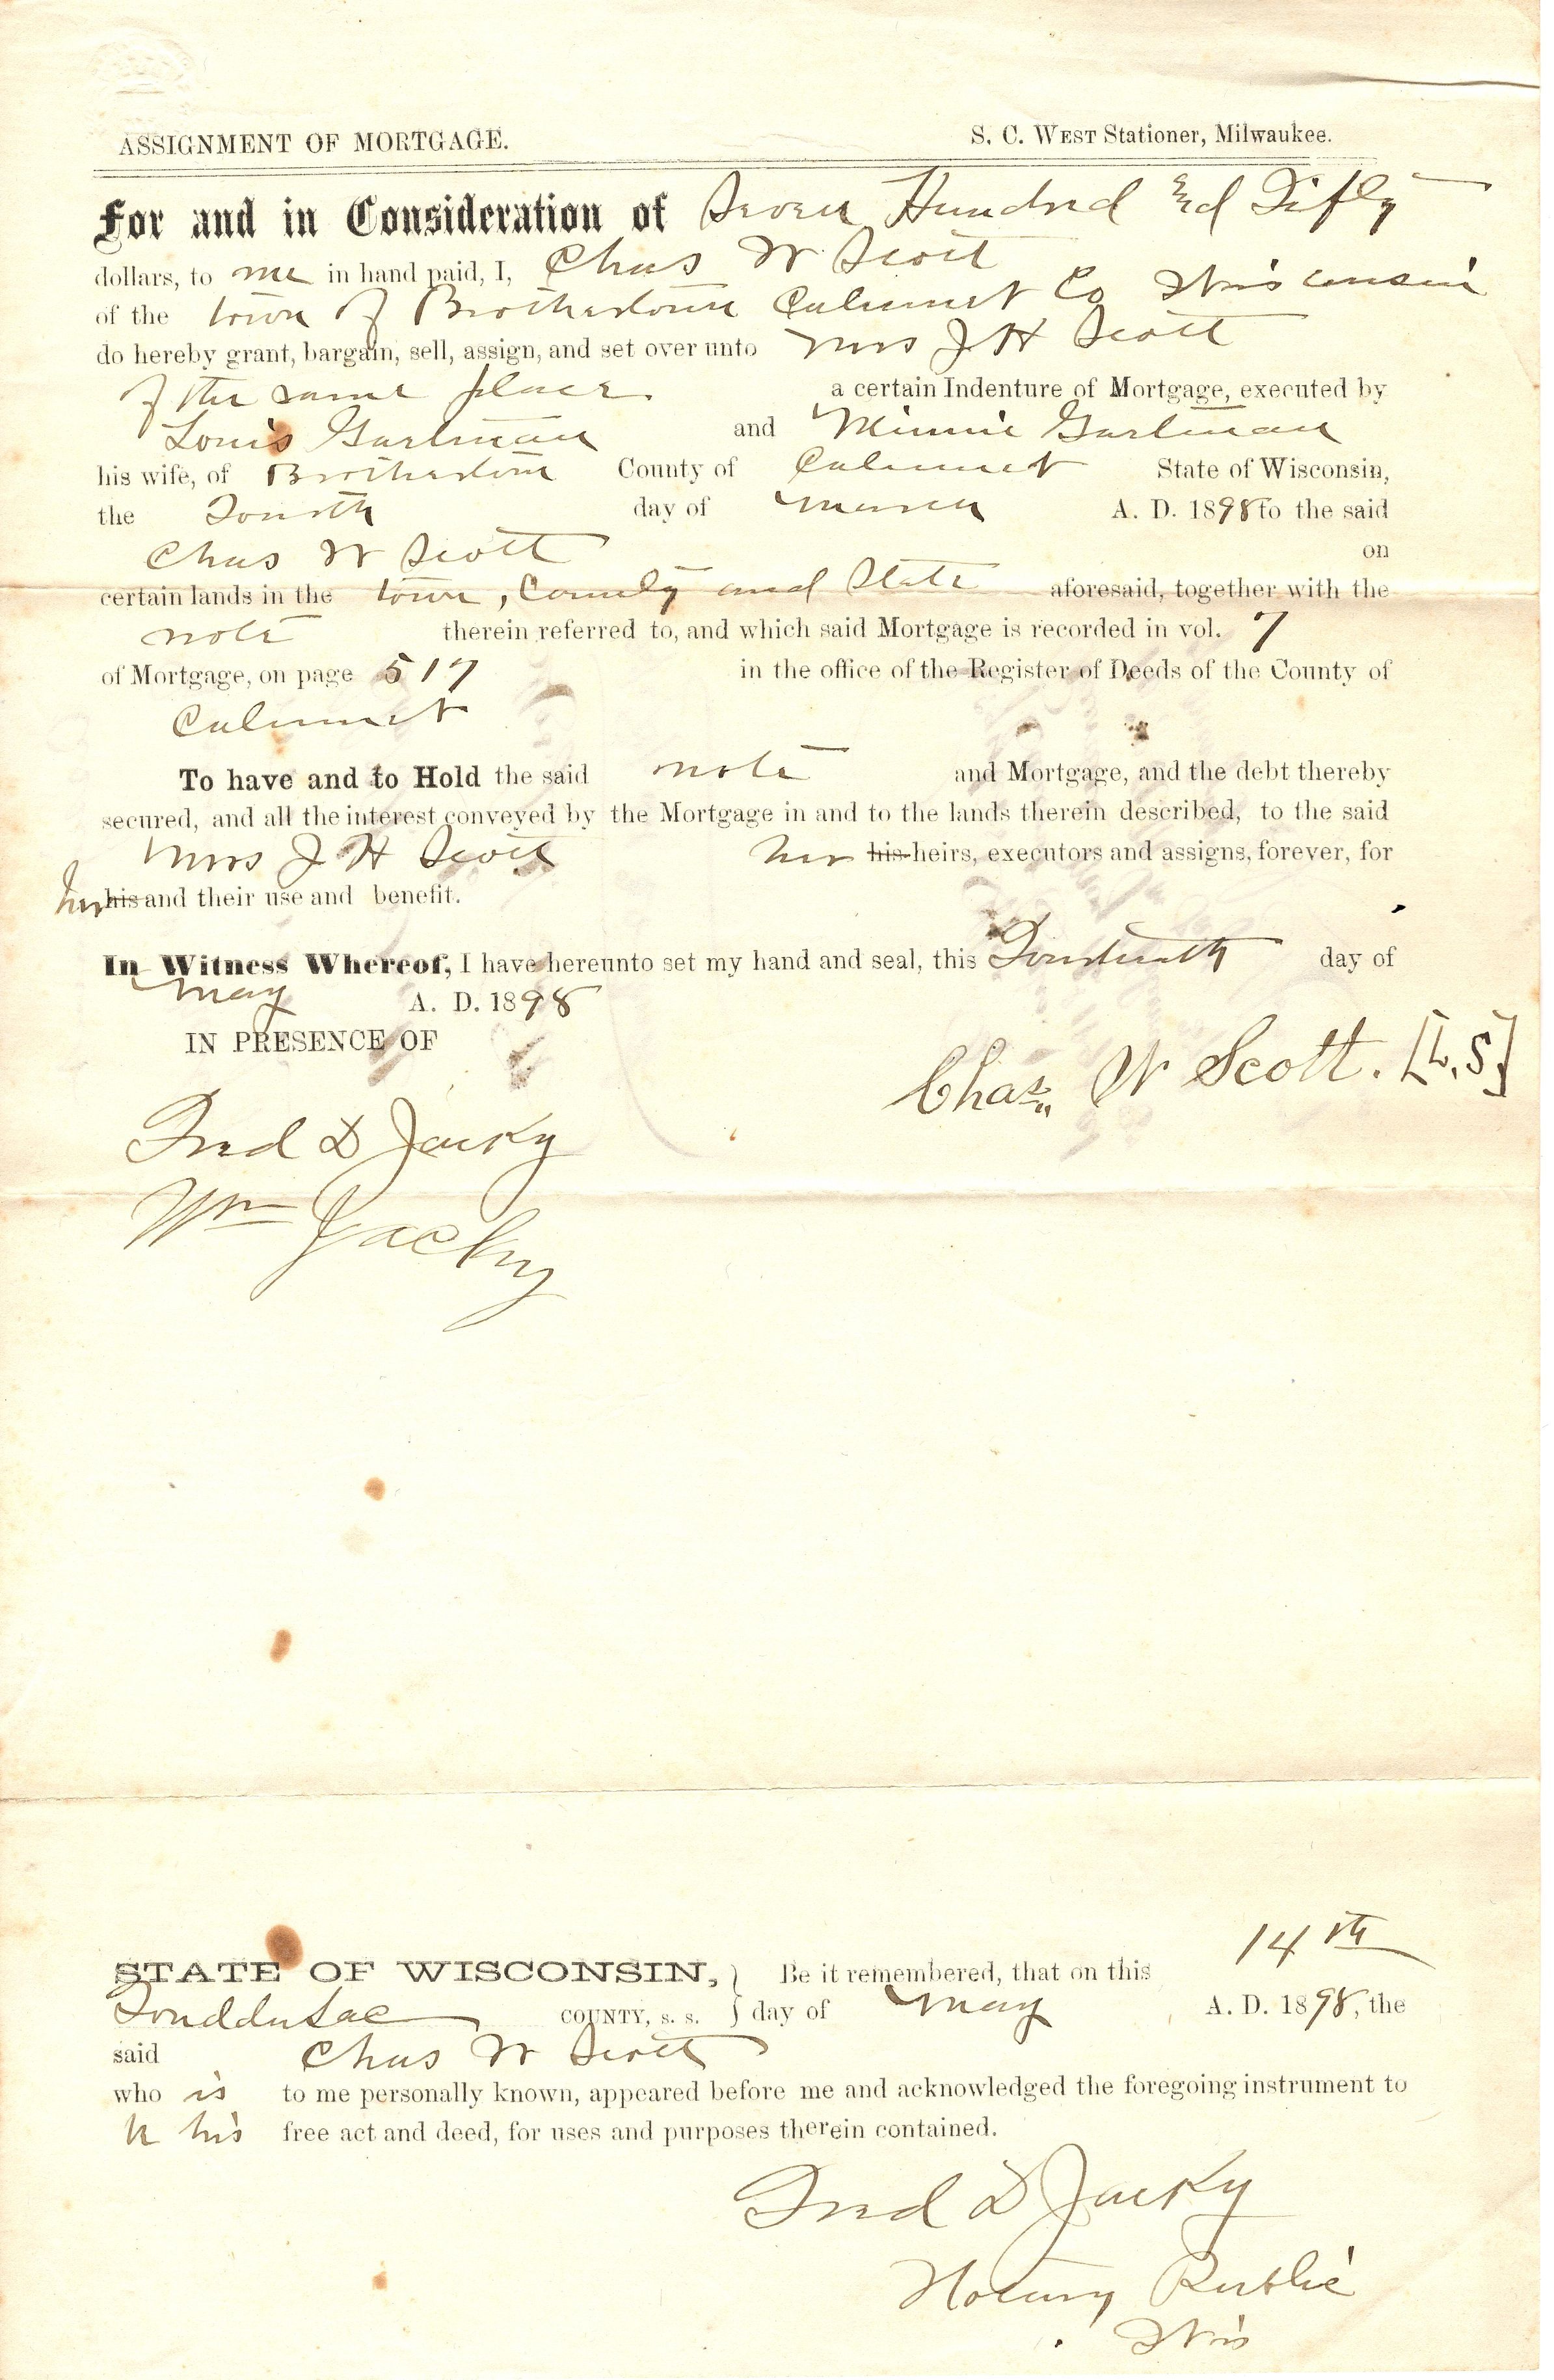 ASSIGNMENT OF MORTGAGE. S. C. WEST Stationer, Milwaukee.
For and in Consideration of Seven Hundred and Fifty
dollars, to me in hand paid, I, Chas W Scott
of the town of Brothertown Calumet Co Wisconsin
do hereby grant, bargain, sell, assign, and set over unto Mrs J H Scott
of the same place a certain Indenture of Mortgage, executed by
Louis Gartman and Minnie Gartman
his wife, of Brothertown County of Calumet State of Wisconsin,
the Fourth day of March A. D. 1898 to the said
Chas W Scott on
certain lands in the town, County and State aforesaid, together with the
note therein referred to, and which said Mortgage is recorded in vol. 7
of Mortgage, on page 517 in the office of the Register of Deeds of the County of
Calumet
To have and to Hold the said note and Mortgage, and the debt thereby
secured, and all the interest conveyed by the Mortgage in and to the lands therein described, to the said
Mrs J H Scott her his heirs, executors and assigns, forever, for
her his and their use and benefit.
In Witness Whereof, I have hereunto set my hand and seal, this Fourteenth day of
May A. D. 1898
IN PRESENCE OF
Chas. W Scott. [L.S]
Fred D Jacky
Wm Jacky
STATE OF WISCONSIN, Be it remembered, that on this 14th
Fonddulac COUNTY, s. s. day of May A. D. 1898, the
said Chas W Scott
who is to me personally known, appeared before me and acknowledged the foregoing instrument to
be his free act and deed, for uses and purposes therein contained.
Fred D Jacky
Notary Public
Wis